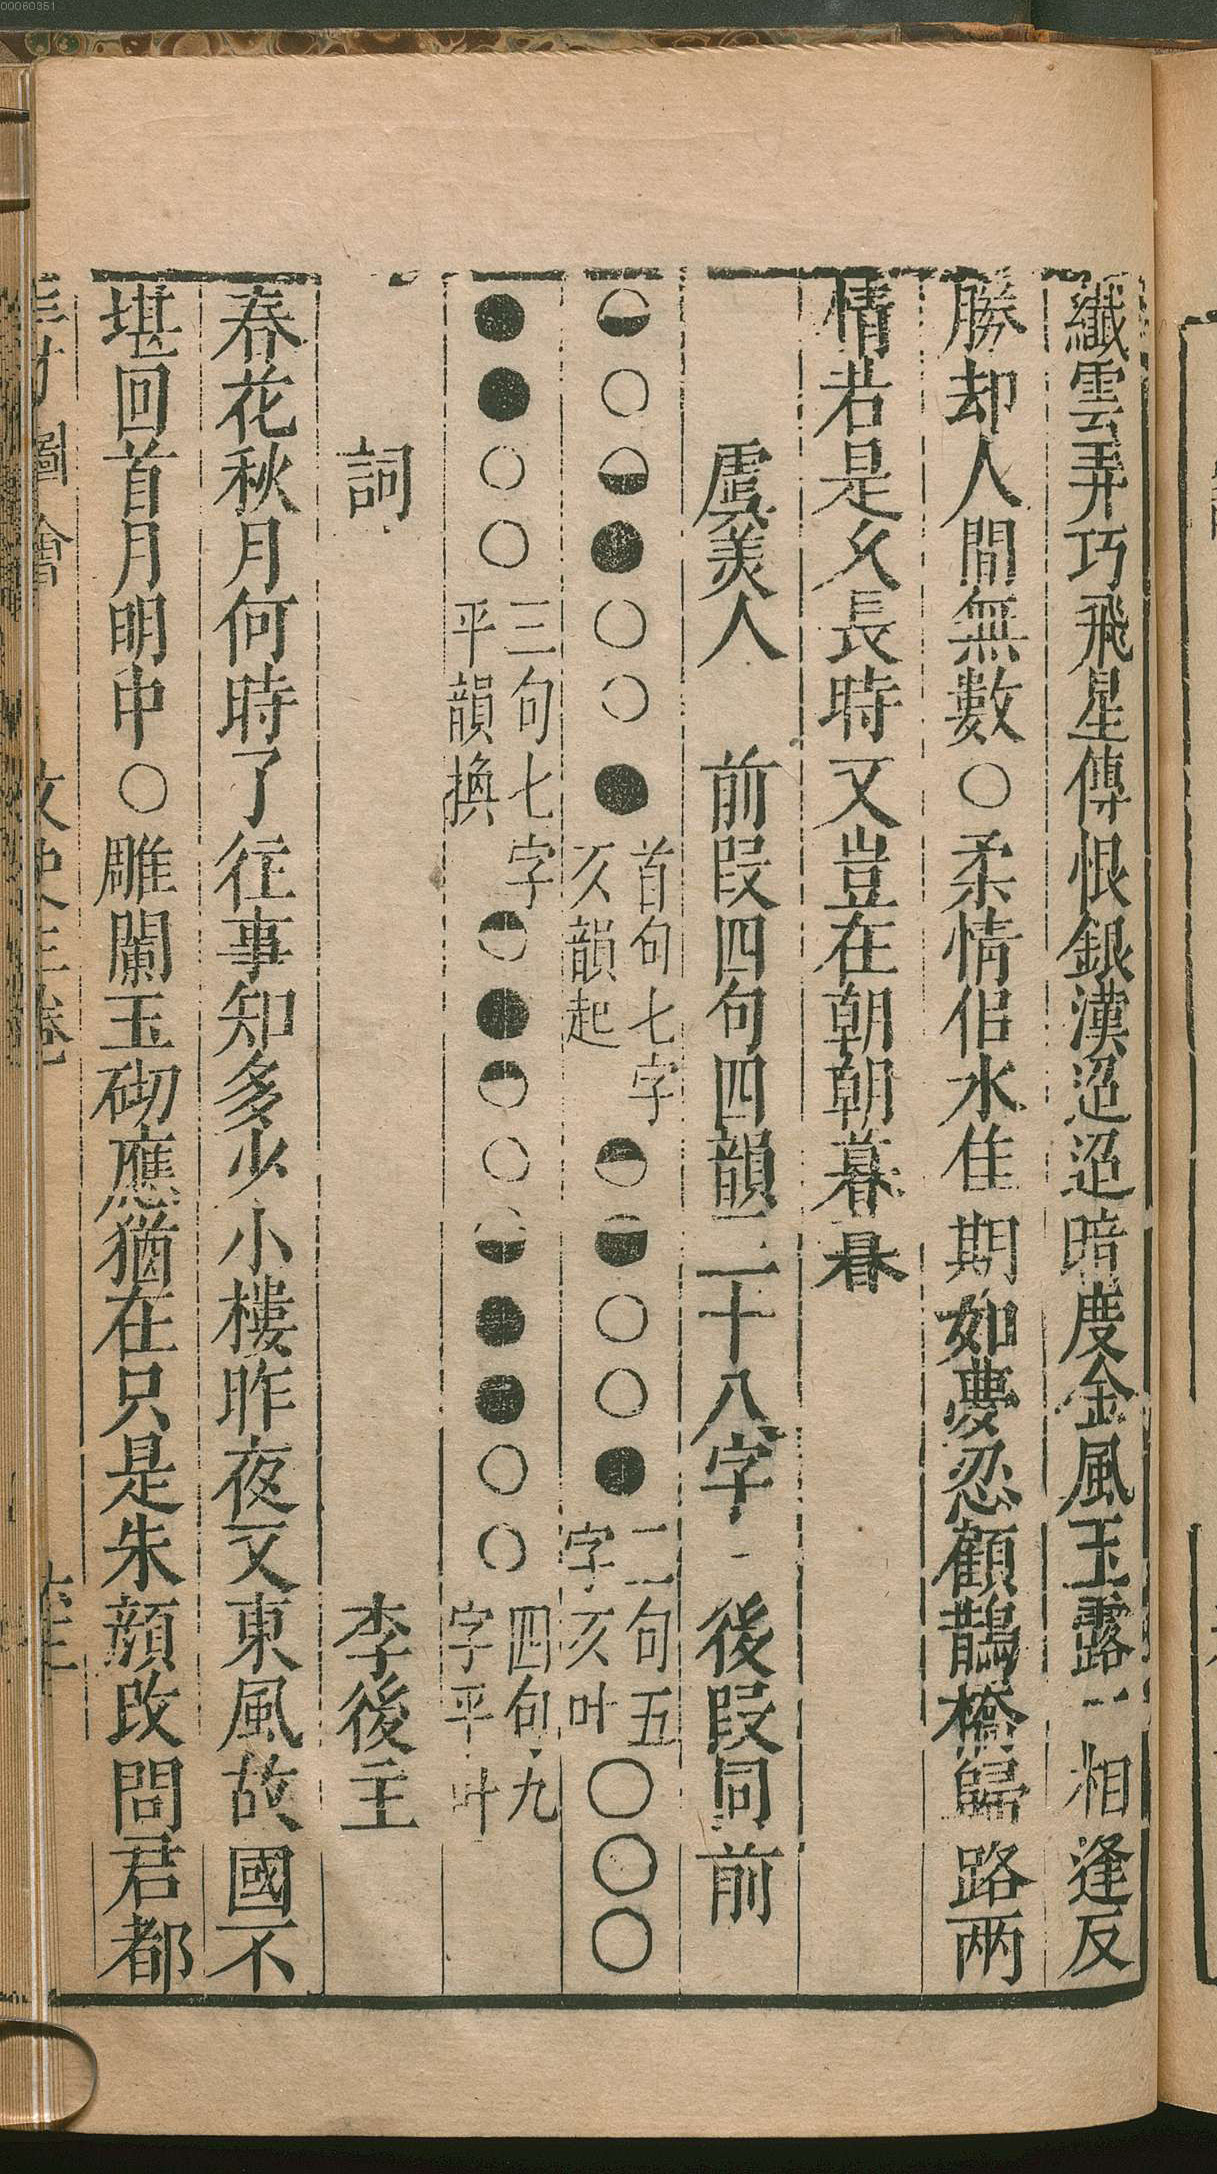 00060351
纖雲弄巧飛星傳恨銀漢迢迢暗度金風玉露一相逢反
勝却人間無數○柔情佀水佳期如夢忍顧鵲橋歸路兩
情若是久長時又豈在朝朝暮暮
虞美人　前段四句四韻二十八字　後段同前
◒○◒●○○●首句七字仄韻起◓◒○○●二句五字仄叶○○○
●●○○三句七字平韻換◓●◓○◒●●○○四句九字平叶
詞　李後主
春花秋月何時了往事知多少小樓昨夜又東風故國不
堪回首月明中○雕闌玉砌應猶在只是朱顔改問君都